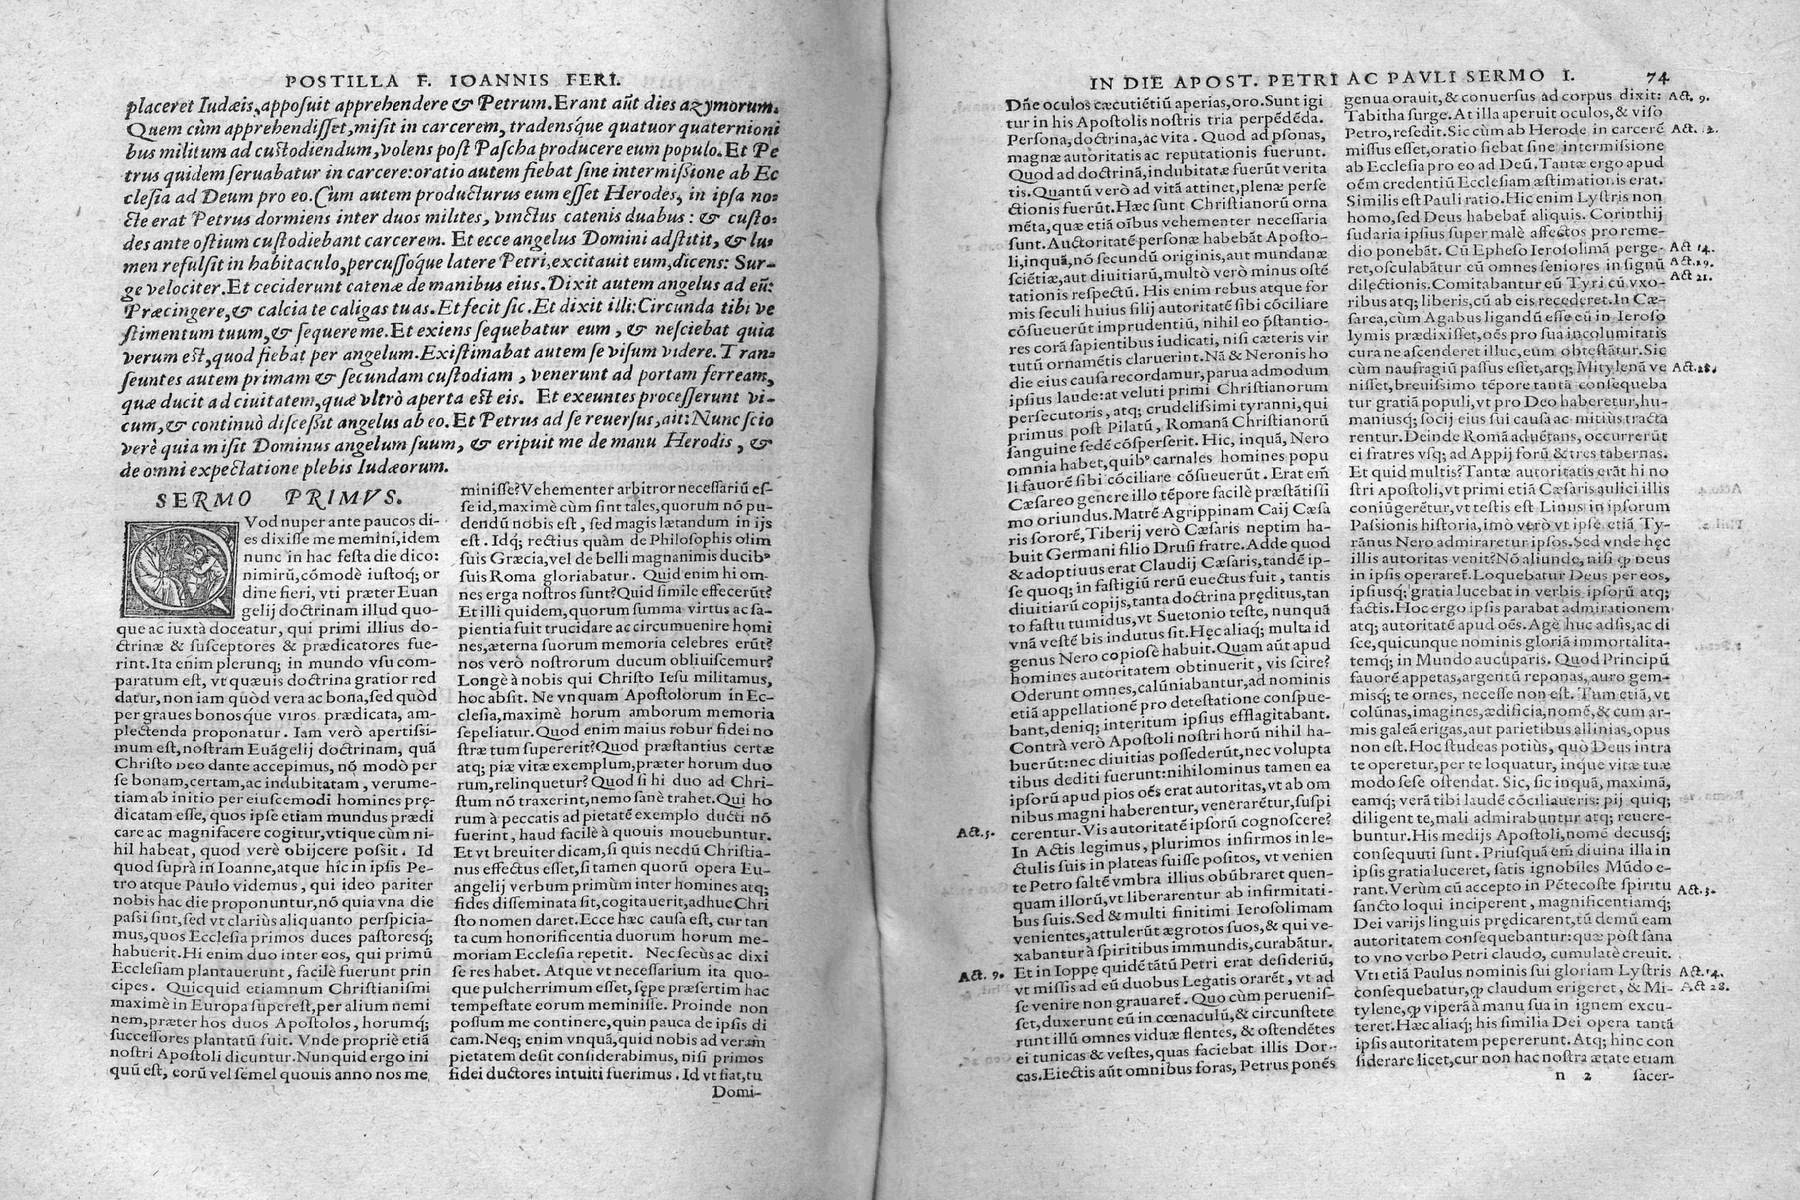 POSTILLA F. IOANNIS FERI.
placeret Iudæis, apposuit apprehendere & Petrum. Erant aũt dies azymorum.
Quem cùm apprehendisset, misit in carcerem, tradensq́ue quatuor quaternioni
bus militum ad custodiendum, volens post Pascha producere eum populo. Et Pe
trus quidem seruabatur in carcere: oratio autem fiebat sine intermißione ab Ec
clesia ad Deum pro eo. Cùm autem producturus eum esset Herodes, in ipsa no-
cte erat Petrus dormiens inter duos milites, vinctus catenis duabus: & custo-
des ante ostium custodiebant carcerem. Et ecce angelus Domini adstitit, & lu-
men refulsit in habitaculo, percussoq́ue latere Petri, excitauit eum, dicens: Sur-
ge velociter. Et ceciderunt catenæ de manibus eius. Dixit autem angelus ad eũ:
Præcingere, & calcia te caligas tuas. Et fecit sic. Et dixit illi: Circunda tibi ve
stimentum tuum, & sequere me. Et exiens sequebatur eum, & nesciebat quia
verum est, quod fiebat per angelum. Existimabat autem se visum videre. Tran-
seuntes autem primam & secundam custodiam, venerunt ad portam ferream,
quæ ducit ad ciuitatem, quæ vltrò aperta est eis. Et exeuntes processerunt vi-
cum, & continuò discessit angelus ab eo. Et Petrus ad se reuersus, ait: Nunc scio
verè quia misit Dominus angelum suum, & eripuit me de manu Herodis, &
de omni expectatione plebis Iudæorum.
SERMO PRIMVS.
QVod nuper ante paucos di-
es dixisse me memini, idem
nunc in hac festa die dico:
nimirũ, cómodè iustoq́; or
dine fieri, vti præter Euan
gelij doctrinam illud quo-
que ac iuxtà doceatur, qui primi illius do-
ctrinæ & susceptores & prædicatores fue-
rint. Ita enim plerunq; in mundo vsu com-
paratum est, vt quæuis doctrina gratior red
datur, non iam quòd vera ac bona, sed quòd
per graues bonosque viros prædicata, am-
plectenda proponatur. Iam verò apertissi-
mum est, nostram Euãgelij doctrinam, quã
Christo DEO dante accepimus, nõ modò per
se bonam, certam, ac indubitatam, verume-
tiam ab initio per eiuscemodi homines prę-
dicatam esse, quos ipse etiam mundus prædi
care ac magnifacere cogitur, vtique cùm ni-
hil habeat, quod verè obijcere possit. Id
quod suprà in Ioanne, atque híc in ipsis Pe-
tro atque Paulo videmus, qui ideo pariter
nobis hac die proponuntur, nõ quia vna die
passi sint, sed vt clariùs aliquanto perspicia-
mus, quos Ecclesia primos duces pastoresq́;
habuerit. Hi enim duo inter eos, qui primũ
Ecclesiam plantauerunt, facilè fuerunt prin
cipes. Quicquid etiamnum Christianismi
maximè in Europa superest, per alium nemi
nem, præter hos duos Apostolos, horumq́;
successores plantatũ fuit. Vnde propriè etiã
nostri Apostoli dicuntur. Nunquid ergo ini
quũ est, eorũ vel semel quouis anno nos me
minisse? Vehementer arbitror necessariũ es-
se id, maximè cùm sint tales, quorum nõ pu-
dendũ nobis est, sed magis lætandum in ijs
est. Idq́; rectius quàm de Philosophis olim
suis Græcia, vel de belli magnanimis ducibꝰ
suis Roma gloriabatur. Quid enim hi om-
nes erga nostros sunt? Quid simile effecerũt?
Et illi quidem, quorum summa virtus ac sa-
pientia fuit trucidare ac circumuenire homi
nes, æterna suorum memoria celebres erũt?
nos verò nostrorum ducum obliuiscemur?
Longè à nobis qui Christo Iesu militamus,
hoc absit. Ne vnquam Apostolorum in Ec-
clesia, maximè horum amborum memoria
sepeliatur. Quod enim maius robur fidei no
stræ tum supererit? Quod præstantius certæ
atq; piæ vitæ exemplum, præter horum duo
rum, relinquetur? Quod si hi duo ad Chri-
stum nõ traxerint, nemo sanè trahet. Qui ho
rum à peccatis ad pietatẽ exemplo ducti nõ
fuerint, haud facilè à quouis mouebuntur.
Et vt breuiter dicam, si quis necdũ Christia-
nus effectus esset, si tamen quorũ opera Eu-
angelij verbum primùm inter homines atq;
fides disseminata sit, cogitauerit, adhuc Chri
sto nomen daret. Ecce hæc causa est, cur tan
ta cum honorificentia duorum horum me-
moriam Ecclesia repetit. Nec secùs ac dixi
se res habet. Atque vt necessarium ita quo-
que pulcherrimum esset, sępe præsertim hac
tempestate eorum meminisse. Proinde non
possum me continere, quin pauca de ipsis di
cam. Neq; enim vnquã, quid nobis ad veram
pietatem desit considerabimus, nisi primos
fidei ductores intuiti fuerimus. Id vt fiat, tu
Domi-
IN DIE APOST. PETRI AC PAVLI SERMO I. 74
Dñe oculos cæcutiẽtiũ aperias, oro. Sunt igi
tur in his Apostolis nostris tria perpẽdẽda.
Persona, doctrina, ac vita. Quod ad psonas,
magnæ autoritatis ac reputationis fuerunt.
Quod ad doctrinã, indubitatæ fuerũt verita
tis. Quantũ verò ad vitã attinet, plenæ perfe
ctionis fuerũt. Hæc sunt Christianorũ orna
mẽta, quæ etiã oĩbus vehementer necessaria
sunt. Auctoritatẽ personæ habebãt Aposto-
li, inquã, nõ secundũ originis, aut mundanæ
sciẽtiæ, aut diuitiarũ, multò verò minus ostẽ
tationis respectũ. His enim rebus atque for
mis seculi huius filij autoritatẽ sibi cõciliare
cõsueuerũt imprudentiũ, nihil eo p̃stantio-
res corã sapientibus iudicati, nisi cæteris vir
tutũ ornamẽtis claruerint. Nã & Neronis ho
die eius causa recordamur, parua admodum
ipsius laude: at veluti primi Christianorum
persecutoris, atq; crudelissimi tyranni, qui
primus post Pilatũ, Romanã Christianorũ
sanguine sedẽ cõsperserit. Hic, inquã, Nero
omnia habet, quibꝰ carnales homines popu
li fauorẽ sibi cõciliare cõsueuerũt. Erat em̃
Cæsareo genere illo tẽpore facilè præstãtissi
mo oriundus. Matrẽ Agrippinam Caij Cæsa
ris sororẽ, Tiberij verò Cæsaris neptim ha-
buit Germani filio Drusi fratre. Adde quod
& adoptiuus erat Claudij Cæsaris, tandẽ ip-
se quoq; in fastigiũ rerũ euectus fuit, tantis
diuitiarũ copijs, tanta doctrina pręditus, tan
to fastu tumidus, vt Suetonio teste, nunquã
vnã vestẽ bis indutus sit. Hęc aliaq́; multa id
genus Nero copiosè habuit. Quam aũt apud
homines autoritatem obtinuerit, vis scire?
Oderunt omnes, calũniabantur, ad nominis
etiã appellationẽ pro detestatione conspue-
bant, deniq; interitum ipsius efflagitabant.
Contrà verò Apostoli nostri horũ nihil ha-
buerũt: nec diuitias possederũt, nec volupta
tibus dediti fuerunt: nihilominus tamen ea
ipsorũ apud pios oẽs erat autoritas, vt ab om
nibus magni haberentur, venerarẽtur, suspi
cerentur. Vis autoritatẽ ipsorũ cognoscere?
Act. 5.
In Actis legimus, plurimos infirmos in le-
ctulis suis in plateas fuisse positos, vt venien
te Petro saltẽ vmbra illius obũbraret quen-
quam illorũ, vt liberarentur ab infirmitati-
bus suis. Sed & multi finitimi Ierosolimam
venientes, attulerũt ægrotos suos, & qui ve-
xabantur à spiritibus immundis, curabãtur.
Act. 9.
Et in Ioppę quidẽ tãtũ Petri erat desideriũ,
vt missis ad eũ duobus Legatis orarẽt, vt ad
se venire non grauaret̃. Quo cùm peruenis-
set, duxerunt eũ in cœnaculũ, & circunstete
runt illũ omnes viduæ flentes, & ostendẽtes
ei tunicas & vestes, quas faciebat illis Dor-
cas. Eiectis aũt omnibus foras, Petrus ponẽs
genua orauit, & conuersus ad corpus dixit:
Act. 9.
Tabitha surge. At illa aperuit oculos, & viso
Petro, resedit. Sic cùm ab Herode in carcerẽ
Act. 12.
missus esset, oratio fiebat sine intermissione
ab Ecclesia pro eo ad Deũ. Tantæ ergo apud
oẽm credentiũ Ecclesiam æstimationis erat.
Similis est Pauli ratio. Hic enim Lystris non
homo, sed Deus habebat̃ aliquis. Corinthij
sudaria ipsius super malè affectos pro reme-
dio ponebãt. Cũ Epheso Ierosolimã perge-
Act. 14.
ret, osculabãtur eũ omnes seniores in signũ
Act. 19.
dilectionis. Comitabantur eũ Tyri cũ vxo-
Act. 21.
ribus atq; liberis, cũ ab eis recederet. In Cæ-
sarea, cùm Agabus ligandũ esse eũ in Ieroso
lymis prædixisset, oẽs pro sua incolumitatis
cura ne ascenderet illuc, eum obtestãtur. Sic
cùm naufragiũ passus esset, atq; Mitylenã ve
Act. 28.
nisset, breuissimo tẽpore tantã consequeba
tur gratiã populi, vt pro Deo haberetur, hu-
maniusq́; socij eius sui causa ac mitiùs tracta
rentur. Deinde Romã aduẽtans, occurrerũt
ei fratres vsq; ad Appij forũ & tres tabernas.
Et quid multis? Tantæ autoritatis erãt hi no
stri Apostoli, vt primi etiã Cæsaris aulici illis
coniũgerẽtur, vt testis est Linus in ipsorum
Passionis historia, imò verò vt ipse etiã Ty-
rãnus Nero admiraretur ipsos. Sed vnde hęc
illis autoritas venit? Nõ aliunde, nisi ꝙ Deus
in ipsis operaret̃. Loquebatur Deus per eos,
ipsiusq́; gratia lucebat in verbis ipsorũ atq;
factis. Hoc ergo ipsis parabat admirationem
atq; autoritatẽ apud oẽs. Agè huc adsis, ac di
sce, quicunque nominis gloriã immortalita-
temq́; in Mundo aucuparis. Quod Principũ
fauorẽ appetas, argentũ reponas, auro gem-
misq́; te ornes, necesse non est. Tum etiã, vt
colũnas, imagines, ædificia, nomẽ, & cum ar-
mis galeã erigas, aut parietibus allinias, opus
non est. Hoc studeas potiùs, quò Deus intra
te operetur, per te loquatur, inque vitæ tuæ
modo sese ostendat. Sic, sic inquã, maximã,
eamq́; verã tibi laudẽ cõciliaueris: pij quiq;
diligent te, mali admirabuntur atq; reuere-
buntur. His medijs Apostoli, nomẽ decusq́;
consequuti sunt. Priusquã em̃ diuina illa in
ipsis gratia luceret, satis ignobiles Mũdo e-
rant. Verùm cũ accepto in Pẽtecoste spiritu
Act. 3.
sancto loqui inciperent, magnificentiamq́;
Dei varijs linguis prędicarent, tũ demũ eam
autoritatem consequebantur: quæ pòst sana
to vno verbo Petri claudo, cumulatè creuit.
Vti etiã Paulus nominis sui gloriam Lystris
Act. 14.
consequebatur, ꝙ claudum erigeret, & Mi-
Act 28.
tylene, ꝙ viperã à manu sua in ignem excu-
teret. Hæc aliaq́; his similia Dei opera tantã
ipsis autoritatem pepererunt. Atq; hinc con
siderare licet, cur non hac nostra ætate etiam
n 2 sacer-